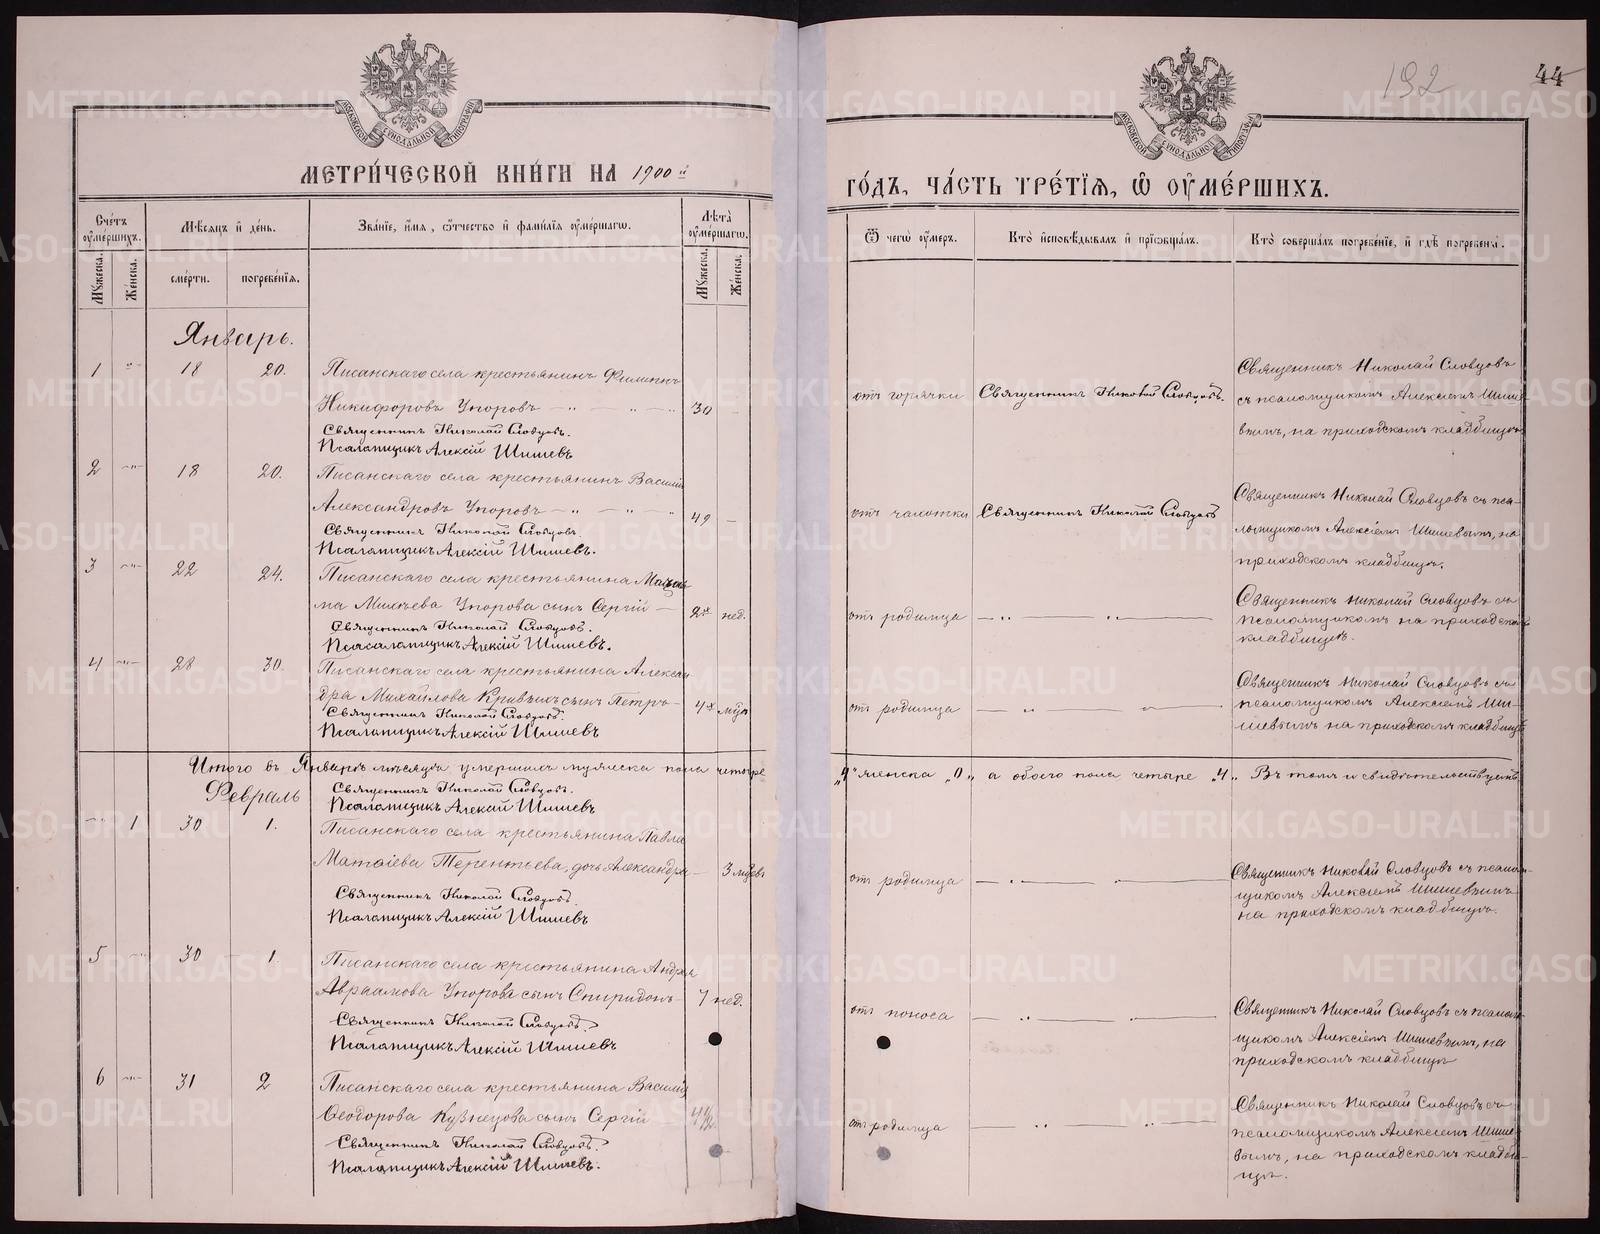 192
44
МОСКОВСКОЙ СУНОДАЛЬНОЙ ТИПОГРАФІИ
МОСКОВСКОЙ СУНОДАЛЬНОЙ ТИПОГРАФІИ
МЕТРИ́ЧЕСКОЙ КНИ́ГИ НА 1900й
ГО́ДЪ, ЧА́СТЬ ТРЕ́ТІѦ, Ѿ ОУ҆МЕ́РШИХЪ.
Сче́тъ оу҆ме́ршихъ.
Мꙋ́жеска.
Же́нска.
Мѣ́сѧцъ и҆ де́нь.
сме́рти.
погребе́нїѧ.
Зва́нїе, и҆́мѧ, ѻ҆́тчество и҆ фами́лїѧ оу҆ме́ршагѡ.
Лѣ́та оу҆ме́ршагѡ.
Мꙋ́жеска.
Же́нска.
Ѿ чегѡ̀ оу҆́меръ.
Кто̀ и҆сповѣ́дывалъ и҆ прїѡбща́лъ.
Кто̀ соверша́лъ погребе́нїе, и҆ гдѣ̀ погребены̀.
Январь.
1 -"- 18 20. Писанскаго села крестьянинъ Филиппъ
Никифоровъ Упоровъ 30
Священникъ Николай Словцовъ.
Псаломщикъ Алексій Шишевъ
отъ горячки Священникъ Николай Словцовъ.
Священникъ Николай Словцовъ
съ псаломщикомъ Алексіемъ Шише-
вымъ, на приходскомъ кладбищѣ
2 -"- 18 20. Писанскаго села крестьянинъ Василій
Александровъ Упоровъ 49
Священникъ Николай Словцовъ.
Псаломщикъ Алексій Шишевъ.
отъ чахотки Священникъ Николай Словцовъ
Священникъ Николай Словцовъ съ пса-
ломщикомъ Алексіемъ Шишевымъ, на
приходскомъ кладбищѣ.
3 -"- 22 24. Писанскаго села крестьянина
Михѣева Упорова сынъ Сергій 2х нед.
Священникъ Николай Словцовъ.
Псаломщикъ Алексій Шишевъ.
отъ родимца
Священникъ Николай Словцовъ съ
псаломщикомъ на приходскомъ
кладбищѣ.
4 -"- 28 30. Писанскаго села крестьянина Алексан
дра Михайлова Кривыхъ сынъ Петръ 4х
Священникъ Николай Словцовъ.
Псаломщикъ Алексій Шишевъ
отъ родимца
Священникъ Николай Словцовъ съ
псаломщикомъ Алексіемъ Ши-
шевымъ на приходскомъ кладбищѣ
Итого въ Январѣ мѣсяцѣ умершихъ мужеска пола четыре
„4" женска „0„ а обоего пола четыре „4„ Въ томъ и свидѣтельствуемъ
Февраль
Священникъ Николай Словцовъ.
Псаломщикъ Алексій Шишевъ
-"- 1 30 1. Писанскаго села крестьянина Павла
Матѳіева Терентьева, дочь Александра 3
Священникъ Николай Словцовъ.
Псаломщикъ Алексій Шишевъ
отъ родимца
Священникъ Николай Словцовъ съ псалом-
щикомъ Алексіемъ Шишевымъ
на приходскомъ кладбищѣ.
5 -"- 30 1. Писанскаго села крестьянина Андрея
Авраамова Упорова сынъ Спиридонъ 7 нед.
Священникъ Николай Словцовъ.
Псаломщикъ Алексій Шишевъ
отъ поноса
Священникъ Николай Словцовъ съ псалом-
щикомъ Алексіемъ Шишевымъ, на
приходскомъ кладбищѣ
6 -"- 31 2 Писанскаго села крестьянина Василія
Ѳеодорова Кузнецова сынъ Сергій
Священникъ Николай Словцовъ.
Псаломщикъ Алексій Шишевъ.
отъ родимца
Священникъ Николай Словцовъ съ
псаломщикомъ Алексіемъ Шише-
вымъ, на приходскомъ кладби-
щѣ.
METRIKI.GASO-URAL.RU